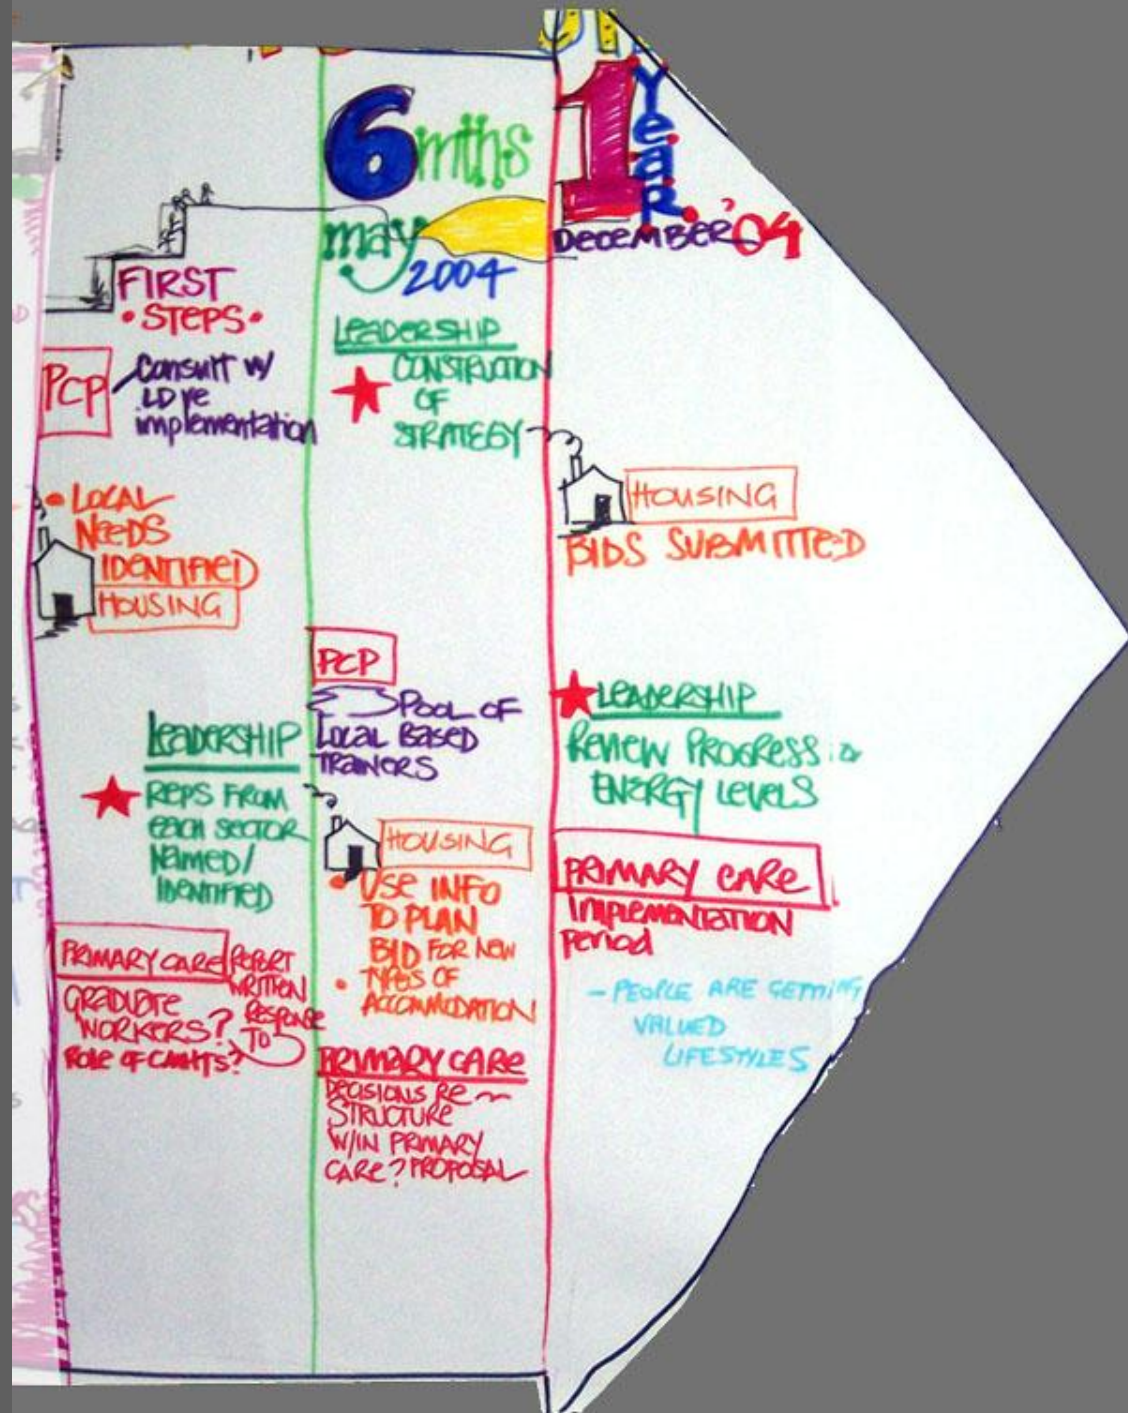 FIRST
• STEPS •
PCP
Consult w/
LD re
implementation
• LOCAL
NEEDS
IDENTIFIED
HOUSING
LEADERSHIP
REPS FROM
EACH SECTOR
NAMED/
IDENTIFIED
PRIMARY CARE
REPORT
WRITTEN
RESPONSE
TO
GRADUATE
WORKERS?
ROLE OF CMHTS?
6 mths
may
2004
LEADERSHIP
CONSTRUCTION
OF
STRATEGY
PCP
POOL OF
LOCAL BASED
TRAINERS
HOUSING
• USE INFO
TO PLAN
BID FOR NEW
• TYPES OF
ACCOMMODATION
PRIMARY CARE
DECISIONS RE
STRUCTURE
W/IN PRIMARY
CARE? PROPOSAL
1 YeaR
DECEMBER '04
HOUSING
BIDS SUBMITTED
LEADERSHIP
REVIEW PROGRESS &
ENERGY LEVELS
PRIMARY CARE
IMPLEMENTATION
Period
- PEOPLE ARE GETTING
VALUED
LIFESTYLES